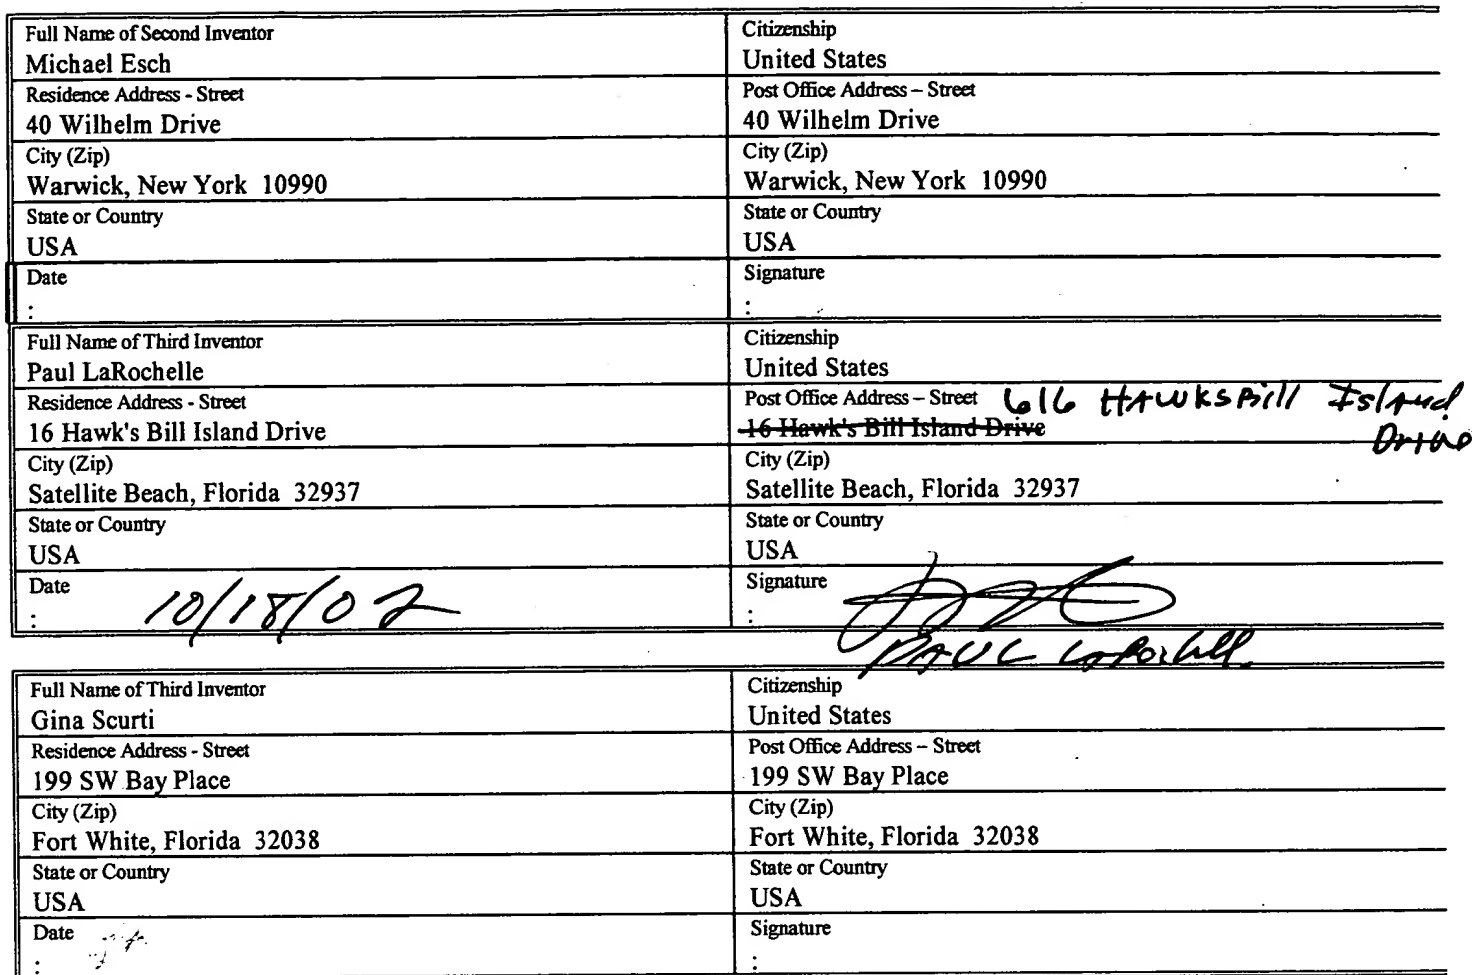 Full Name of Second Inventor
Michael Esch
Citizenship
United States
Residence Address - Street
40 Wilhelm Drive
Post Office Address – Street
40 Wilhelm Drive
City (Zip)
Warwick, New York 10990
City (Zip)
Warwick, New York 10990
State or Country
USA
State or Country
USA
Date
:
Signature
:
Full Name of Third Inventor
Paul LaRochelle
Citizenship
United States
Residence Address - Street
16 Hawk's Bill Island Drive
Post Office Address – Street 616 HAWKSBill Island
Drive
16 Hawk's Bill Island Drive
City (Zip)
Satellite Beach, Florida 32937
City (Zip)
Satellite Beach, Florida 32937
State or Country
USA
State or Country
USA
Date
: 10/18/02
Signature
:
PAUL LaRochelle
Full Name of Third Inventor
Gina Scurti
Citizenship
United States
Residence Address - Street
199 SW Bay Place
Post Office Address – Street
199 SW Bay Place
City (Zip)
Fort White, Florida 32038
City (Zip)
Fort White, Florida 32038
State or Country
USA
State or Country
USA
Date
:
Signature
: